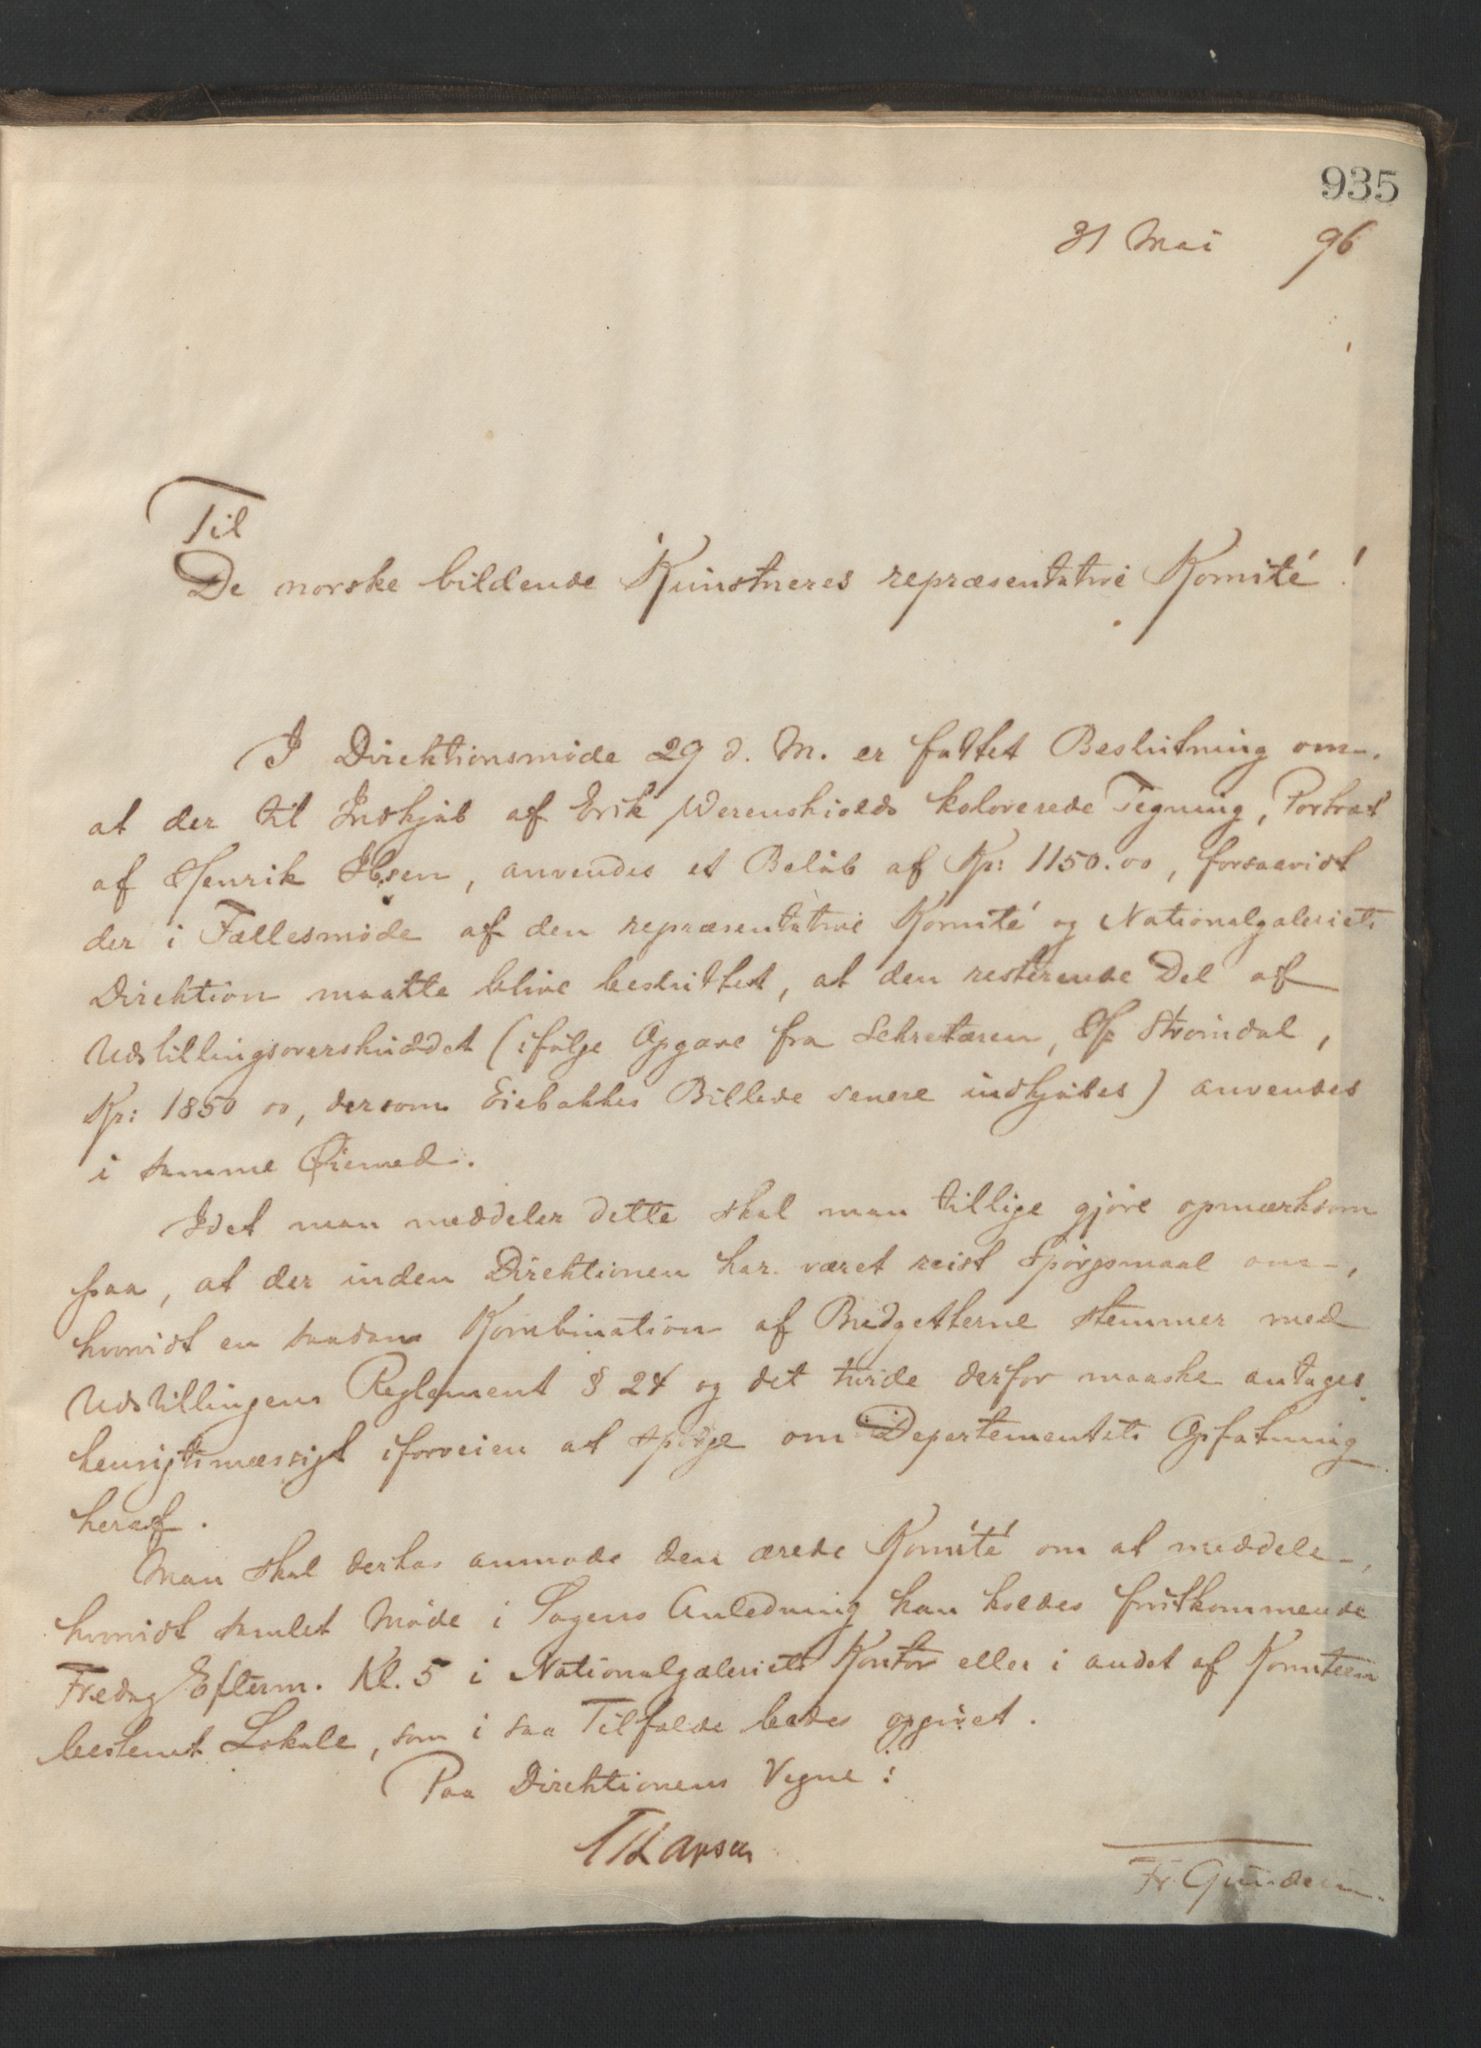 935
31 Mai 96
Til
De norske bildende Kunstneres repræsentative Komité!
I Direktionsmøde 29 d. M. er fattet Beslutning om,
at der til Indkjøb af Erik Werenskiolds kolorerede Tegning, Portræt
af Henrik Ibsen, anvendes et Beløb af Kr: 1150.00, forsaavidt
der i Fællesmøde af den repræsentative Komité og Nationalgaleriets
Direktion maatte blive besluttet, at den resterende Del af
Udstillingsoverskuddet (ifølge Opgave fra Sekretæren, Hr Strømdal,
Kr: 1850 00, dersom Eiebakkes Billede senere indkjøbes) anvendes
i samme Øiemed.
Idet man meddeler dette skal man tillige gjøre opmærksom
paa, at der inden Direktionen har været reist Spørgsmaal om,
hvorvidt en saadan Kombination af Budgetterne stemmer med
Udstillingens Reglement § 24 og det turde derfor maaske antages
hensigtsmæssigt iforveien at spørge om Departementets Opfatning
heraf.
Man skal derhos anmode den ærede Komité om at meddele,
hvorvidt samlet Møde i Sagens Anledning kan holdes førstkommende
Fredag Efterm. Kl. 5 i Nationalgaleriets Kontor eller i andet af Komiteen
bestemt Lokale, som i saa Tilfælde bedes opgivet.
Paa Direktionens Vegne: